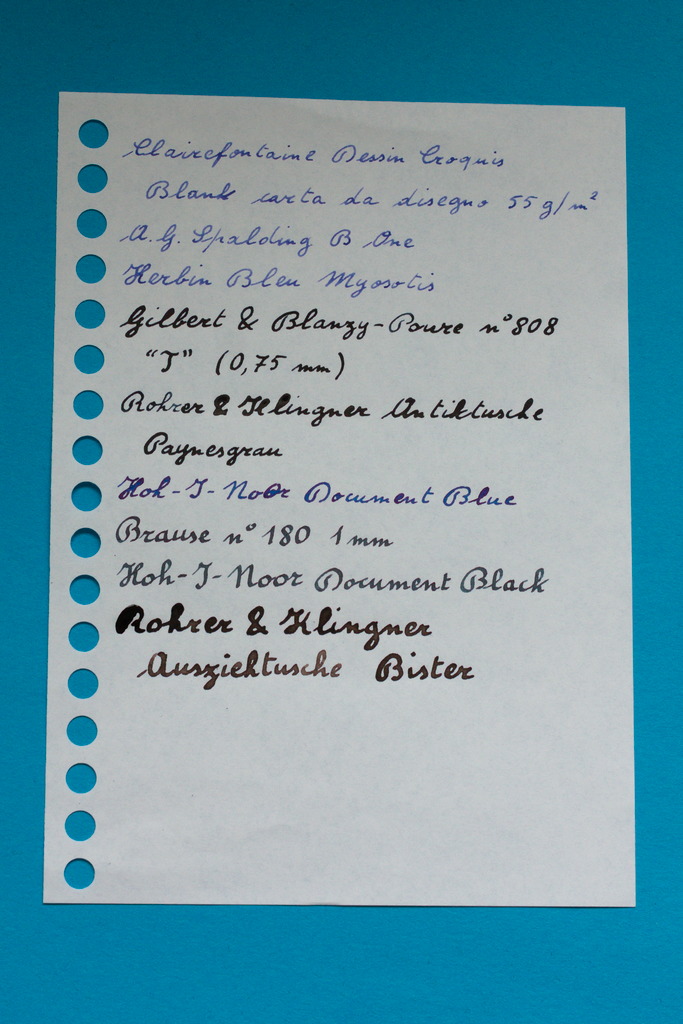 Clairefontaine Dessin Croquis
Blank carta da disegno 55 g/m²
A.G. Spalding B One
Herbin Bleu Myosotis
Gilbert & Blanzy-Poure n° 808
"T" (0,75 mm)
Rohrer & Klingner Antiktusche
Paynesgrau
Koh-I-Noor Document Blue
Brause n° 180 1 mm
Koh-I-Noor Document Black
Rohrer & Klingner
Ausziehtusche Bister